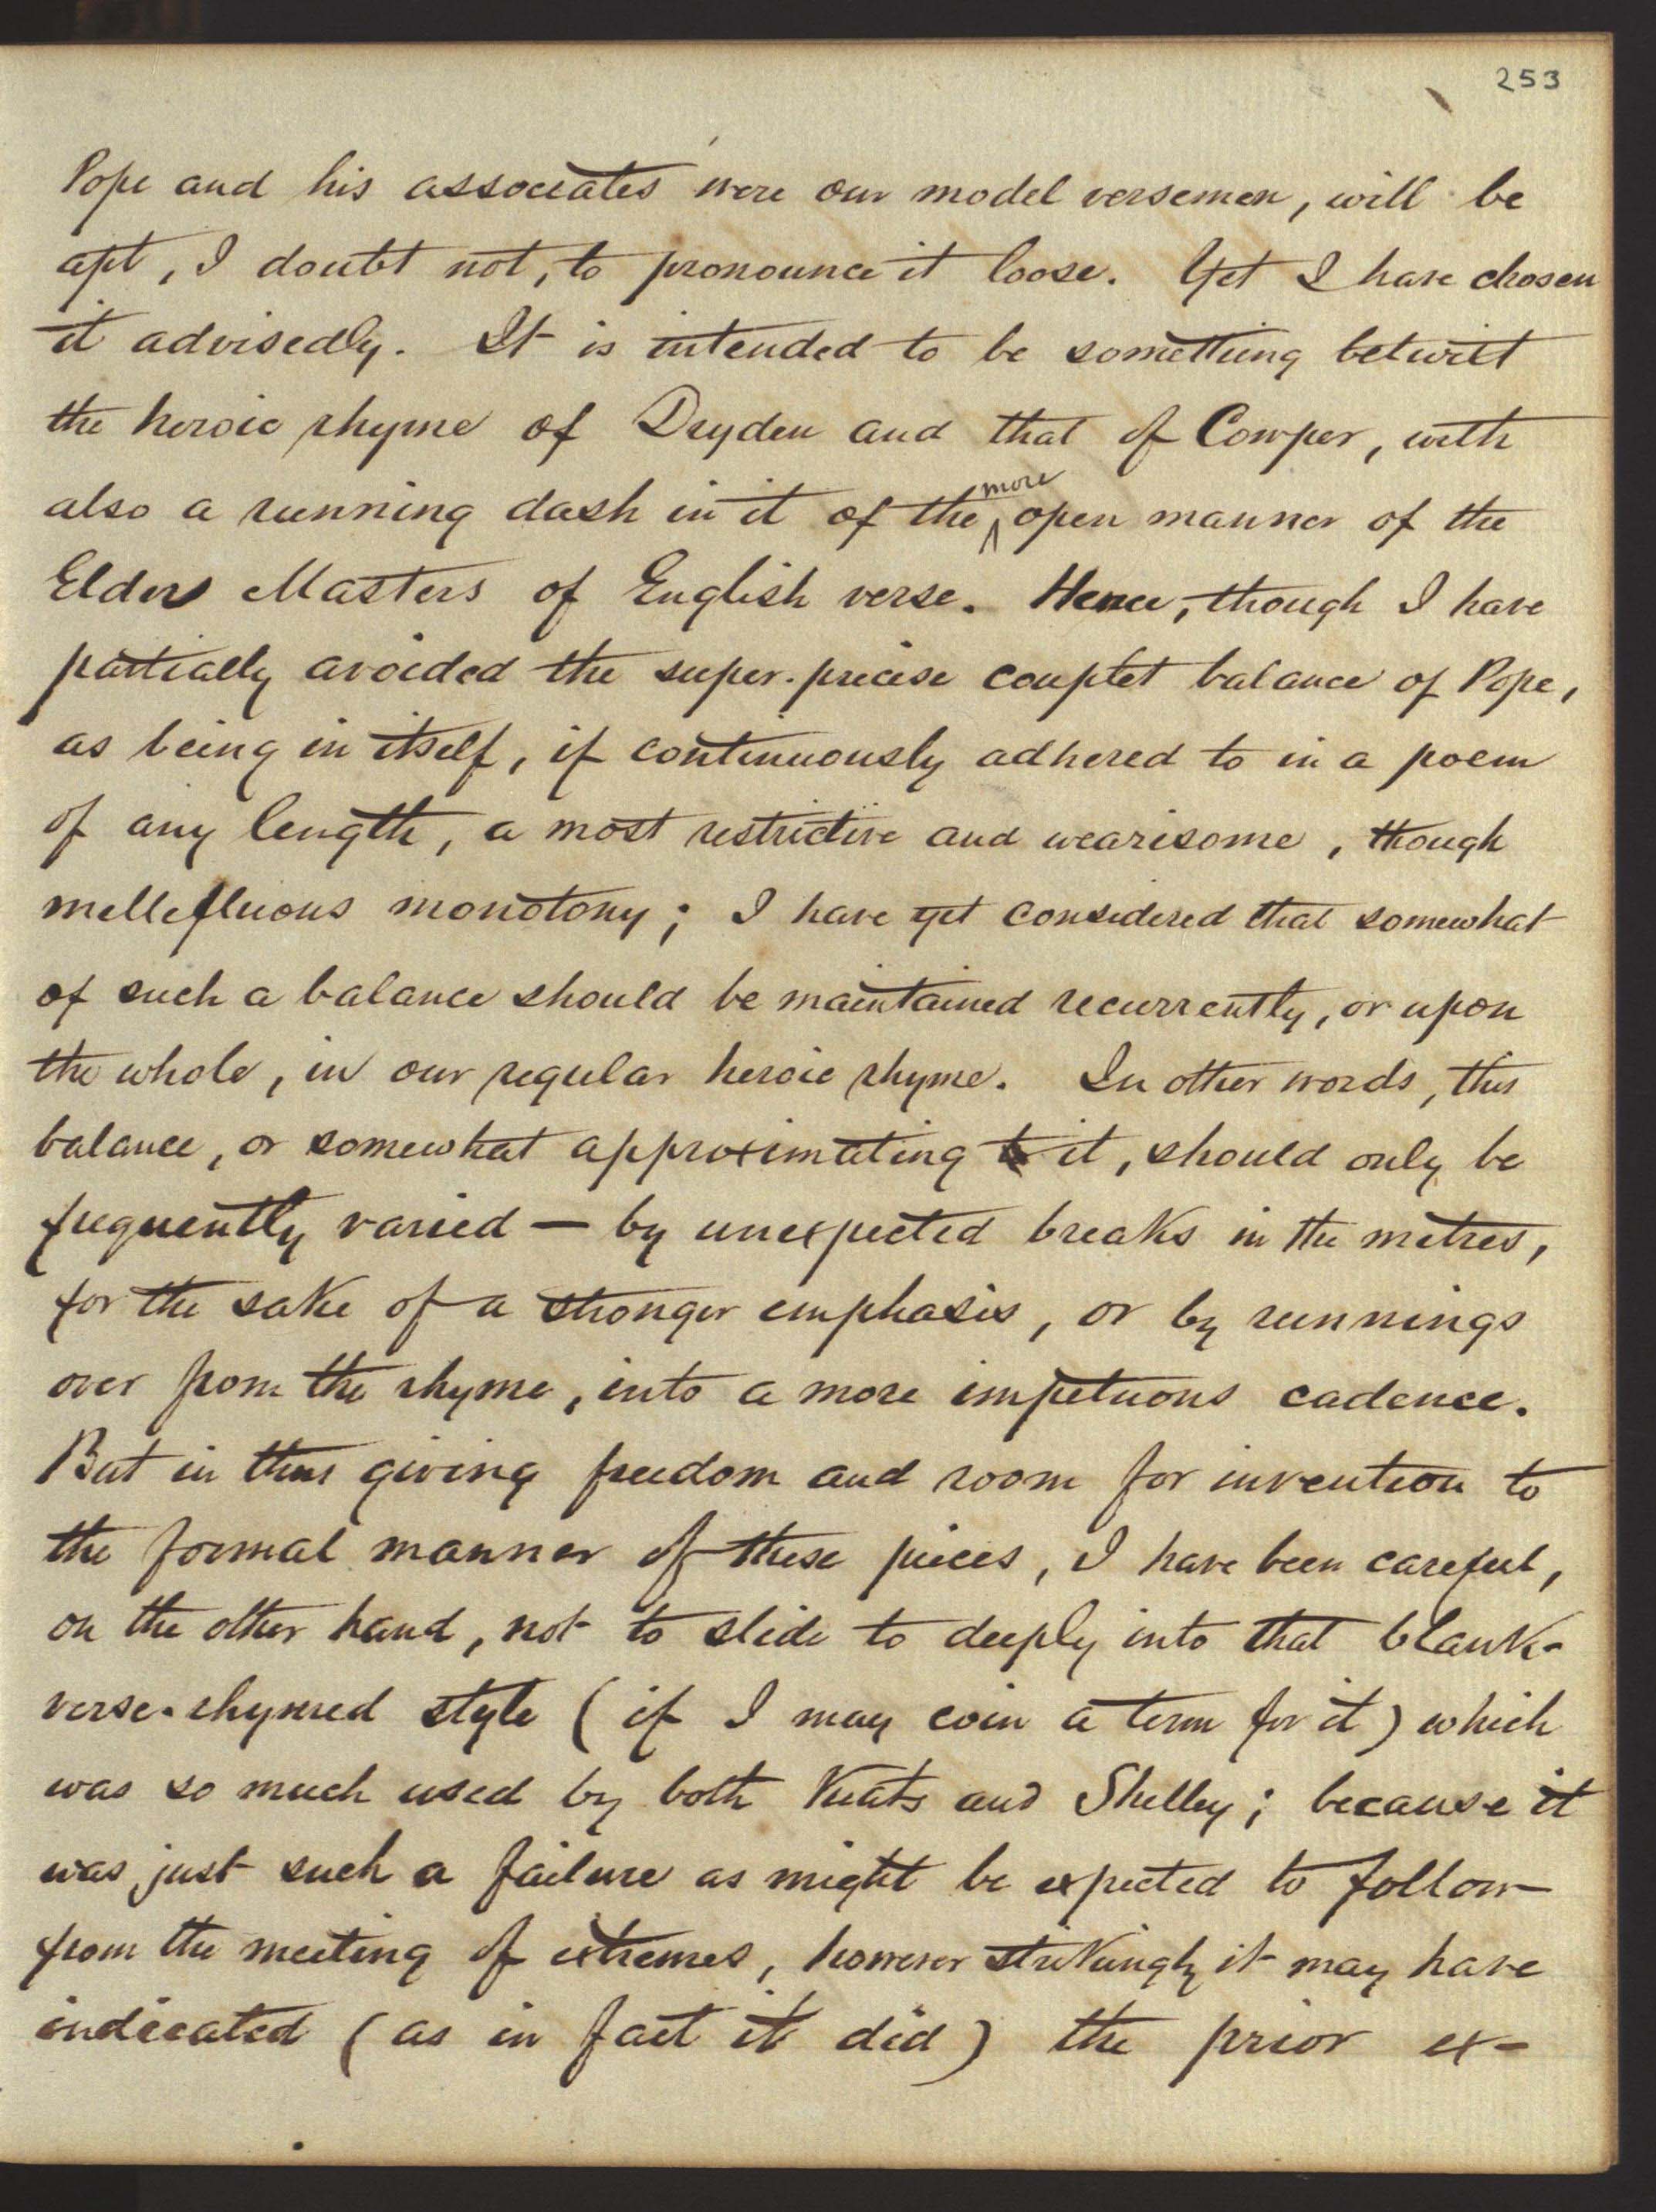 253
Pope and his associates were our model versemen, will be
apt, I doubt not, to pronounce it loose. Yet I have chosen
it advisedly. It is intended to be something betwixt
the heroic rhyme of Dryden and that of Cowper, with
also a running dash in it of the more open manner of the
Elder Masters of English verse. Hence, though I have
partially avoided the super-precise couplet balance of Pope,
as being in itself, if continuously adhered to in a poem
of any length, a most restrictive and wearisome, though
mellefluous monotony; I have yet considered that somewhat
of such a balance should be maintained recurrently, or upon
the whole, in our regular heroic rhyme. In other words, this
balance, or somewhat approximating to it, should only be
frequently varied — by unexpected breaks in the metres,
for the sake of a stronger emphasis, or by runnings
over from the rhyme, into a more impetuous cadence.
But in thus giving freedom and room for invention to
the formal manner of these pieces, I have been careful,
on the other hand, not to slide to deeply into that blank-
verse-rhymed style (if I may coin a term for it) which
was so much used by both Keats and Shelley; because it
was just such a failure as might be expected to follow
from the meeting of extremes, however strikingly it may have
indicated (as in fact it did) the prior ex-